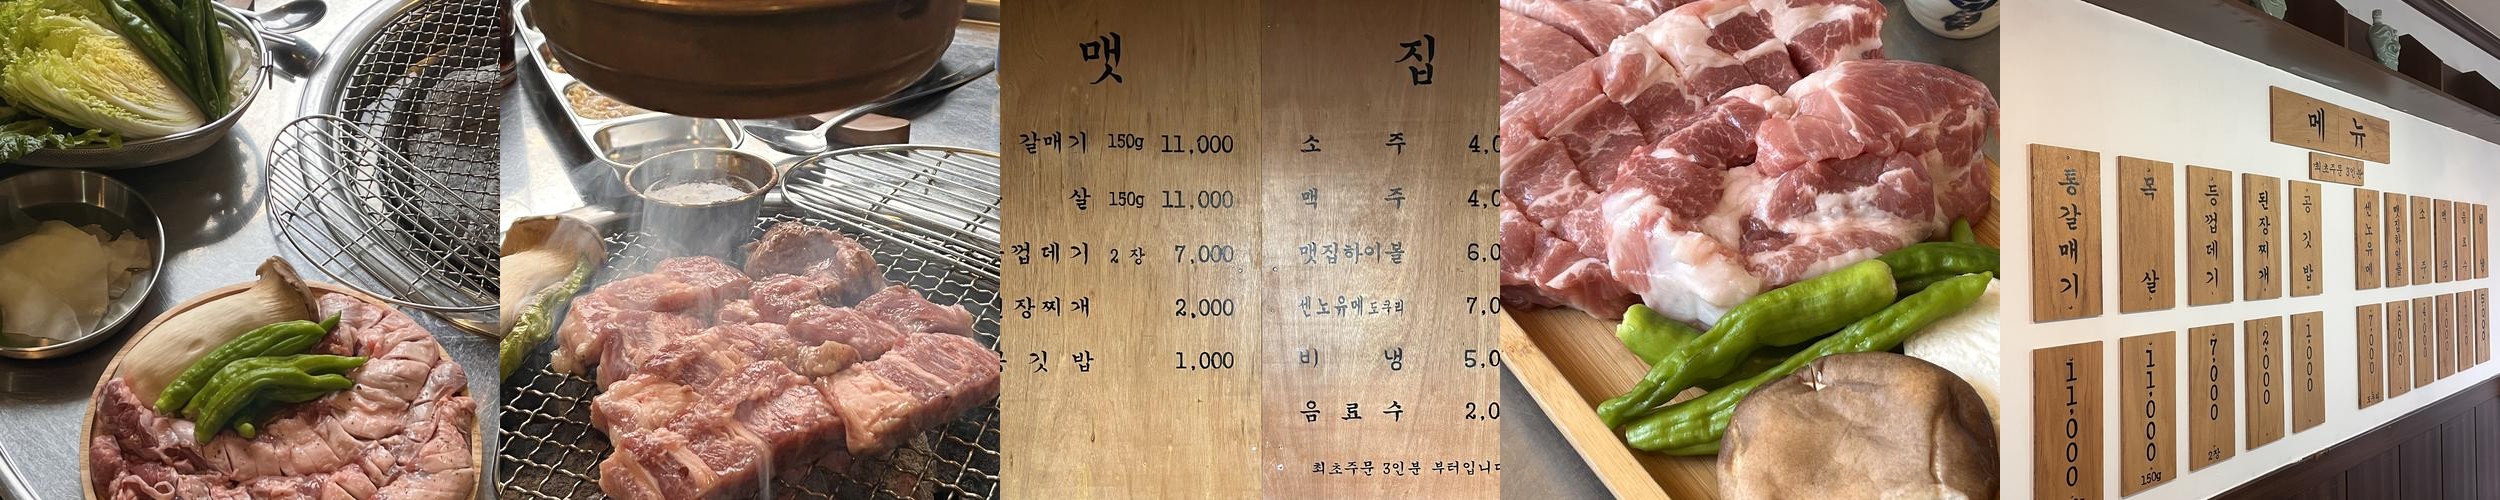 맷 집
갈매기 150g 11,000
살 150g 11,000
껍데기 2장 7,000
장찌개 2,000
깃밥 1,000
소주 4,0
맥주 4,0
맷집하이볼 6,0
센노유메도쿠리 7,0
비냉 5,0
음료수 2,0
최초주문 3인분 부터입니다
메뉴
최초주문 3인분
통갈매기
목살
등껍데기
된장찌개
공깃밥
센노유메
맷집하이볼
소주
맥주
음료수
비냉
11,000
11,000
150g
7,000
2장
2,000
1,000
7,000
6,000
4,000
4,000
5,000